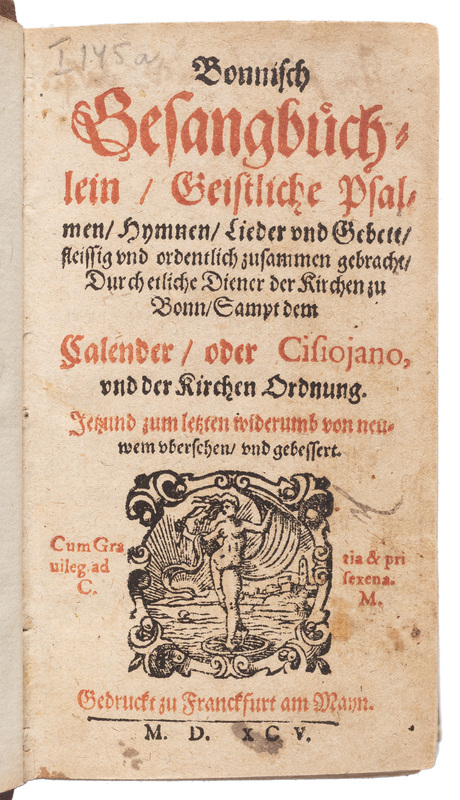 I 145a
Bonnisch
Gesangbuͤch⸗
lein / Geistliche Psal⸗
men/ Hymnen/ Lieder vnd Gebett/
fleissig vnd ordentlich zusammen gebracht/
Durch etliche Diener der Kirchen zu
Bonn/ Sampt dem
Calender / oder Cisiojano,
vnd der Kirchen Ordnung.
Jetzund zum letzten widerumb von neu⸗
wem vbersehen/ vnd gebessert.
Cum Gra tia & pri
uileg. ad sexena.
C. M.
Gedruckt zu Franckfurt am Mayn.
M. D. XCV.